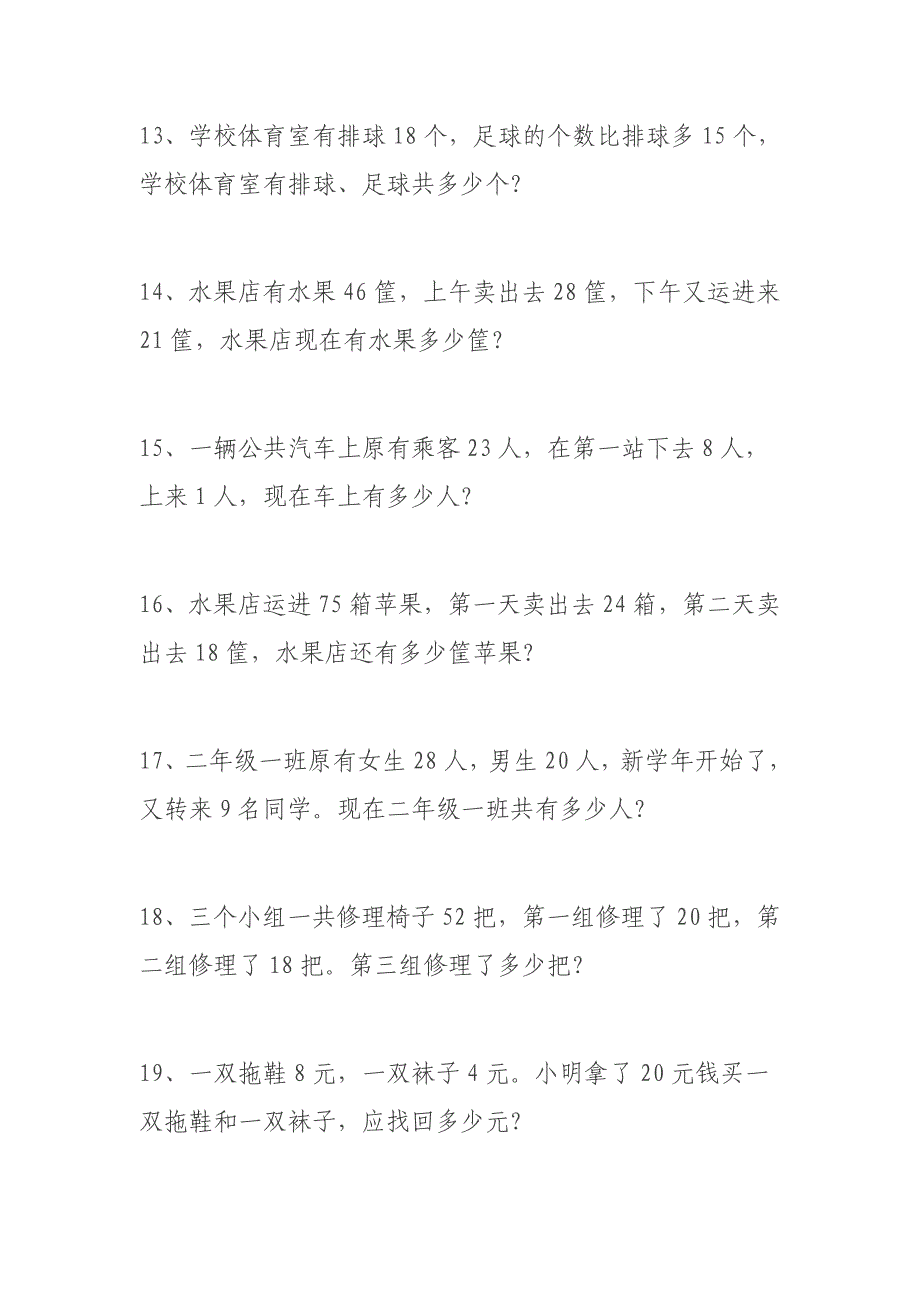 13、学校体育室有排球 18 个，足球的个数比排球多 15 个，
学校体育室有排球、足球共多少个？
14、水果店有水果 46 筐，上午卖出去 28 筐，下午又运进来
21 筐，水果店现在有水果多少筐？
15、一辆公共汽车上原有乘客 23 人，在第一站下去 8 人，
上来 1 人，现在车上有多少人？
16、水果店运进 75 箱苹果，第一天卖出去 24 箱，第二天卖
出去 18 筐，水果店还有多少筐苹果？
17、二年级一班原有女生 28 人，男生 20 人，新学年开始了，
又转来 9 名同学。现在二年级一班共有多少人？
18、三个小组一共修理椅子 52 把，第一组修理了 20 把，第
二组修理了 18 把。第三组修理了多少把？
19、一双拖鞋 8 元，一双袜子 4 元。小明拿了 20 元钱买一
双拖鞋和一双袜子，应找回多少元？